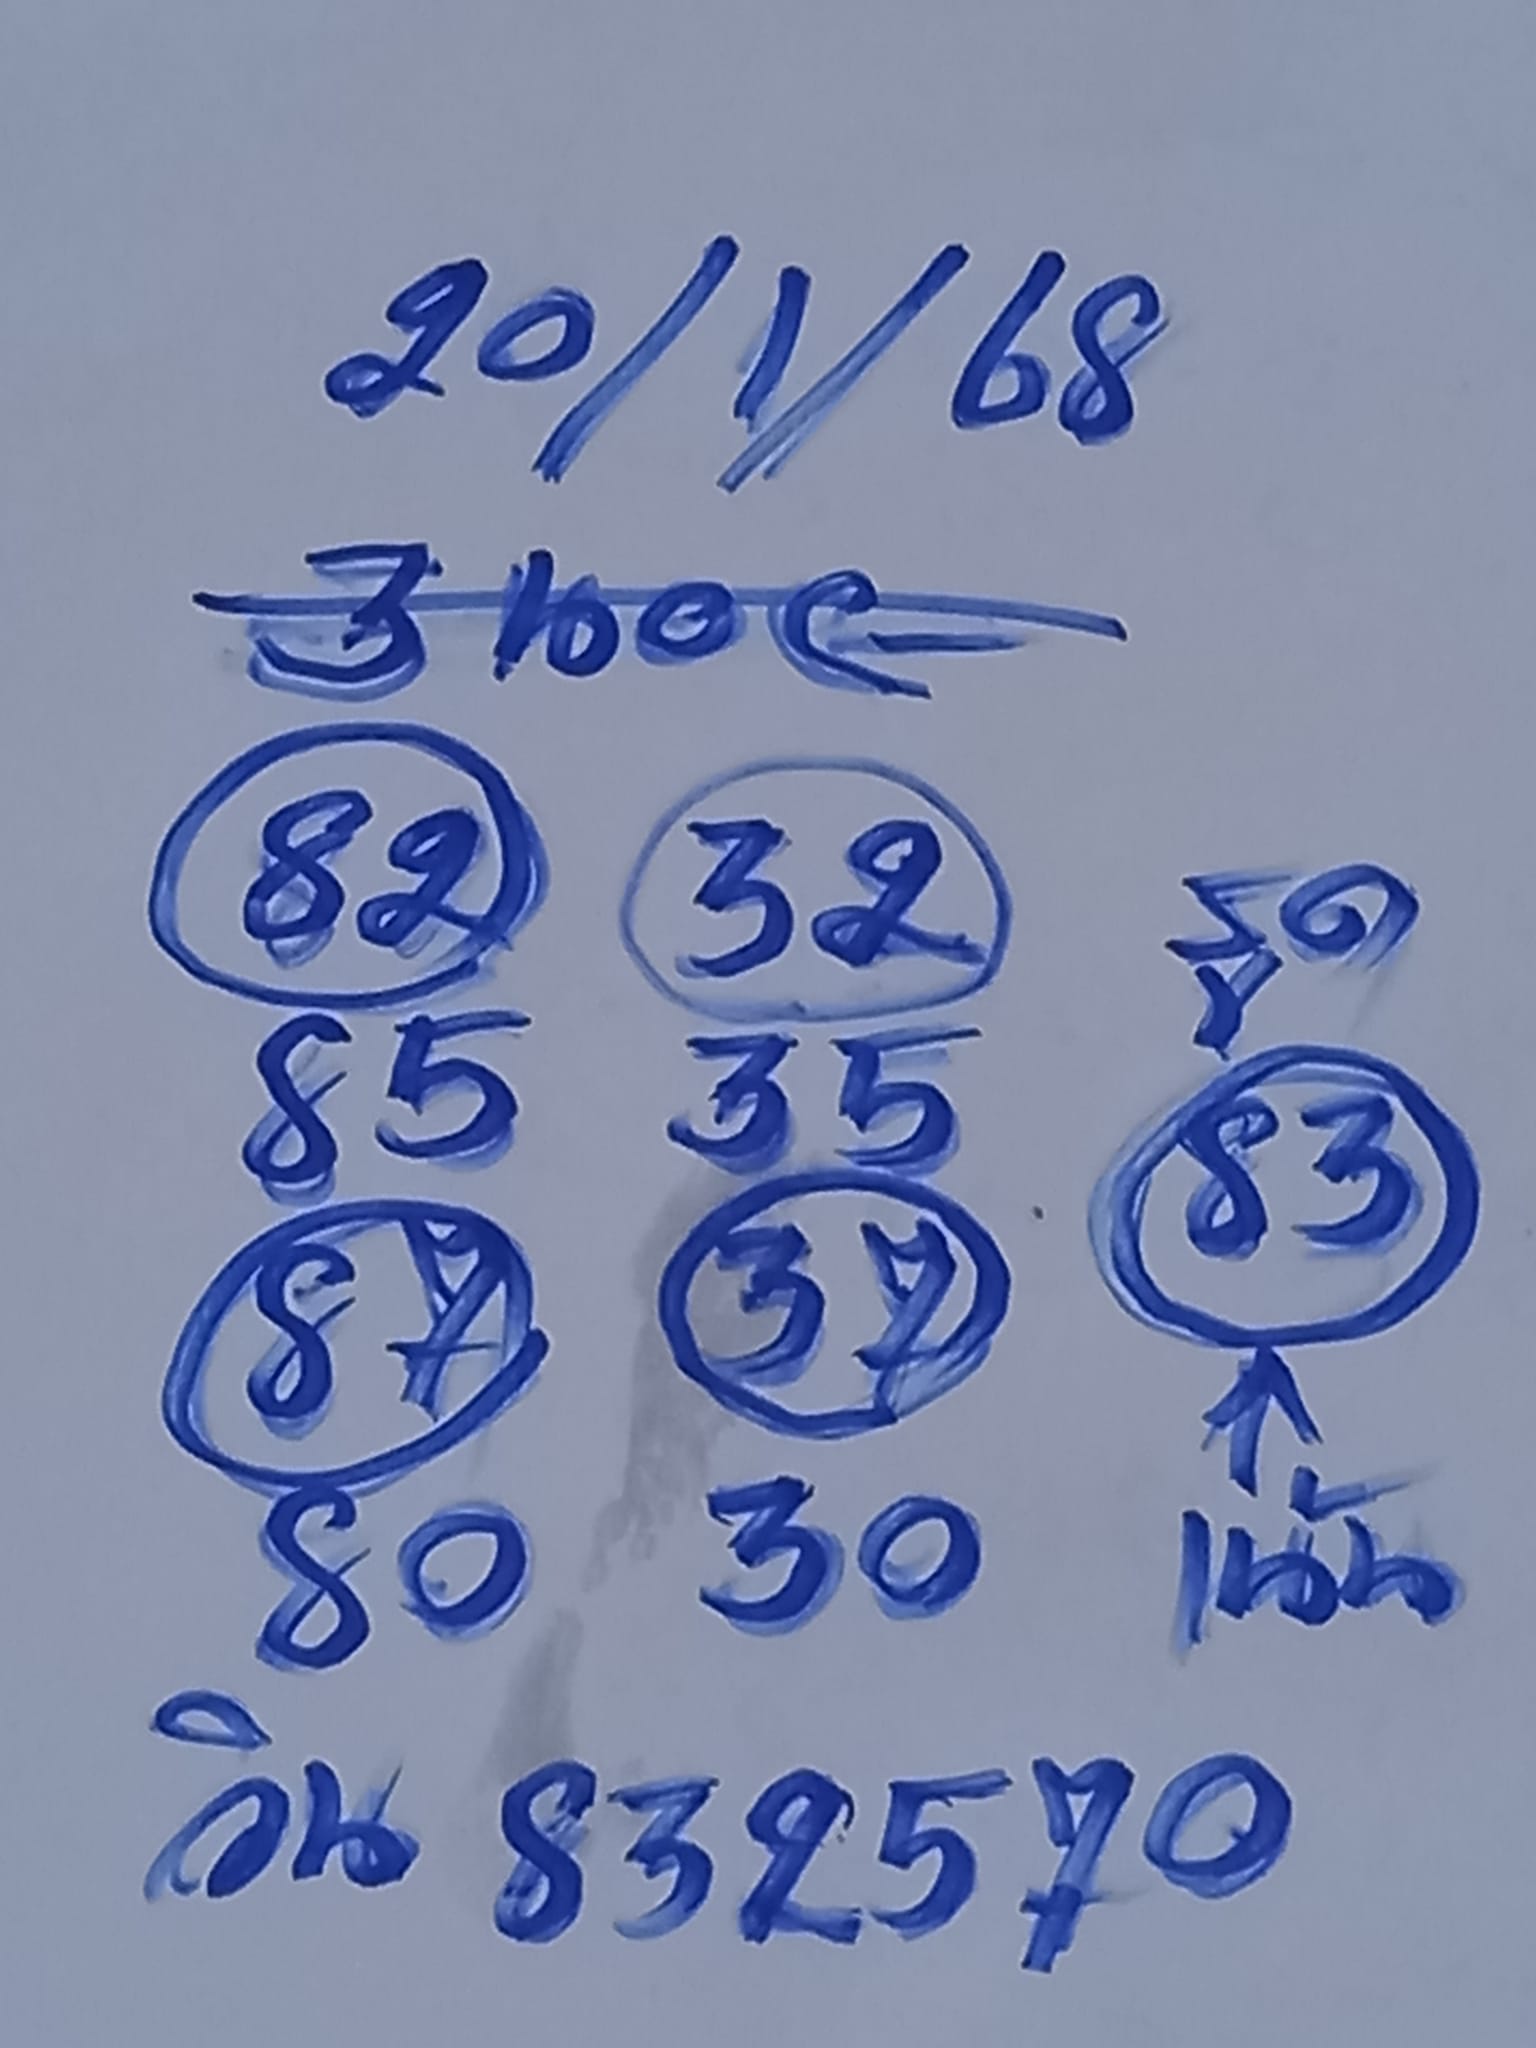 20/1/68
82 32
รูด
85 35
83
87 37
80 30
เน้น
วิน 832570